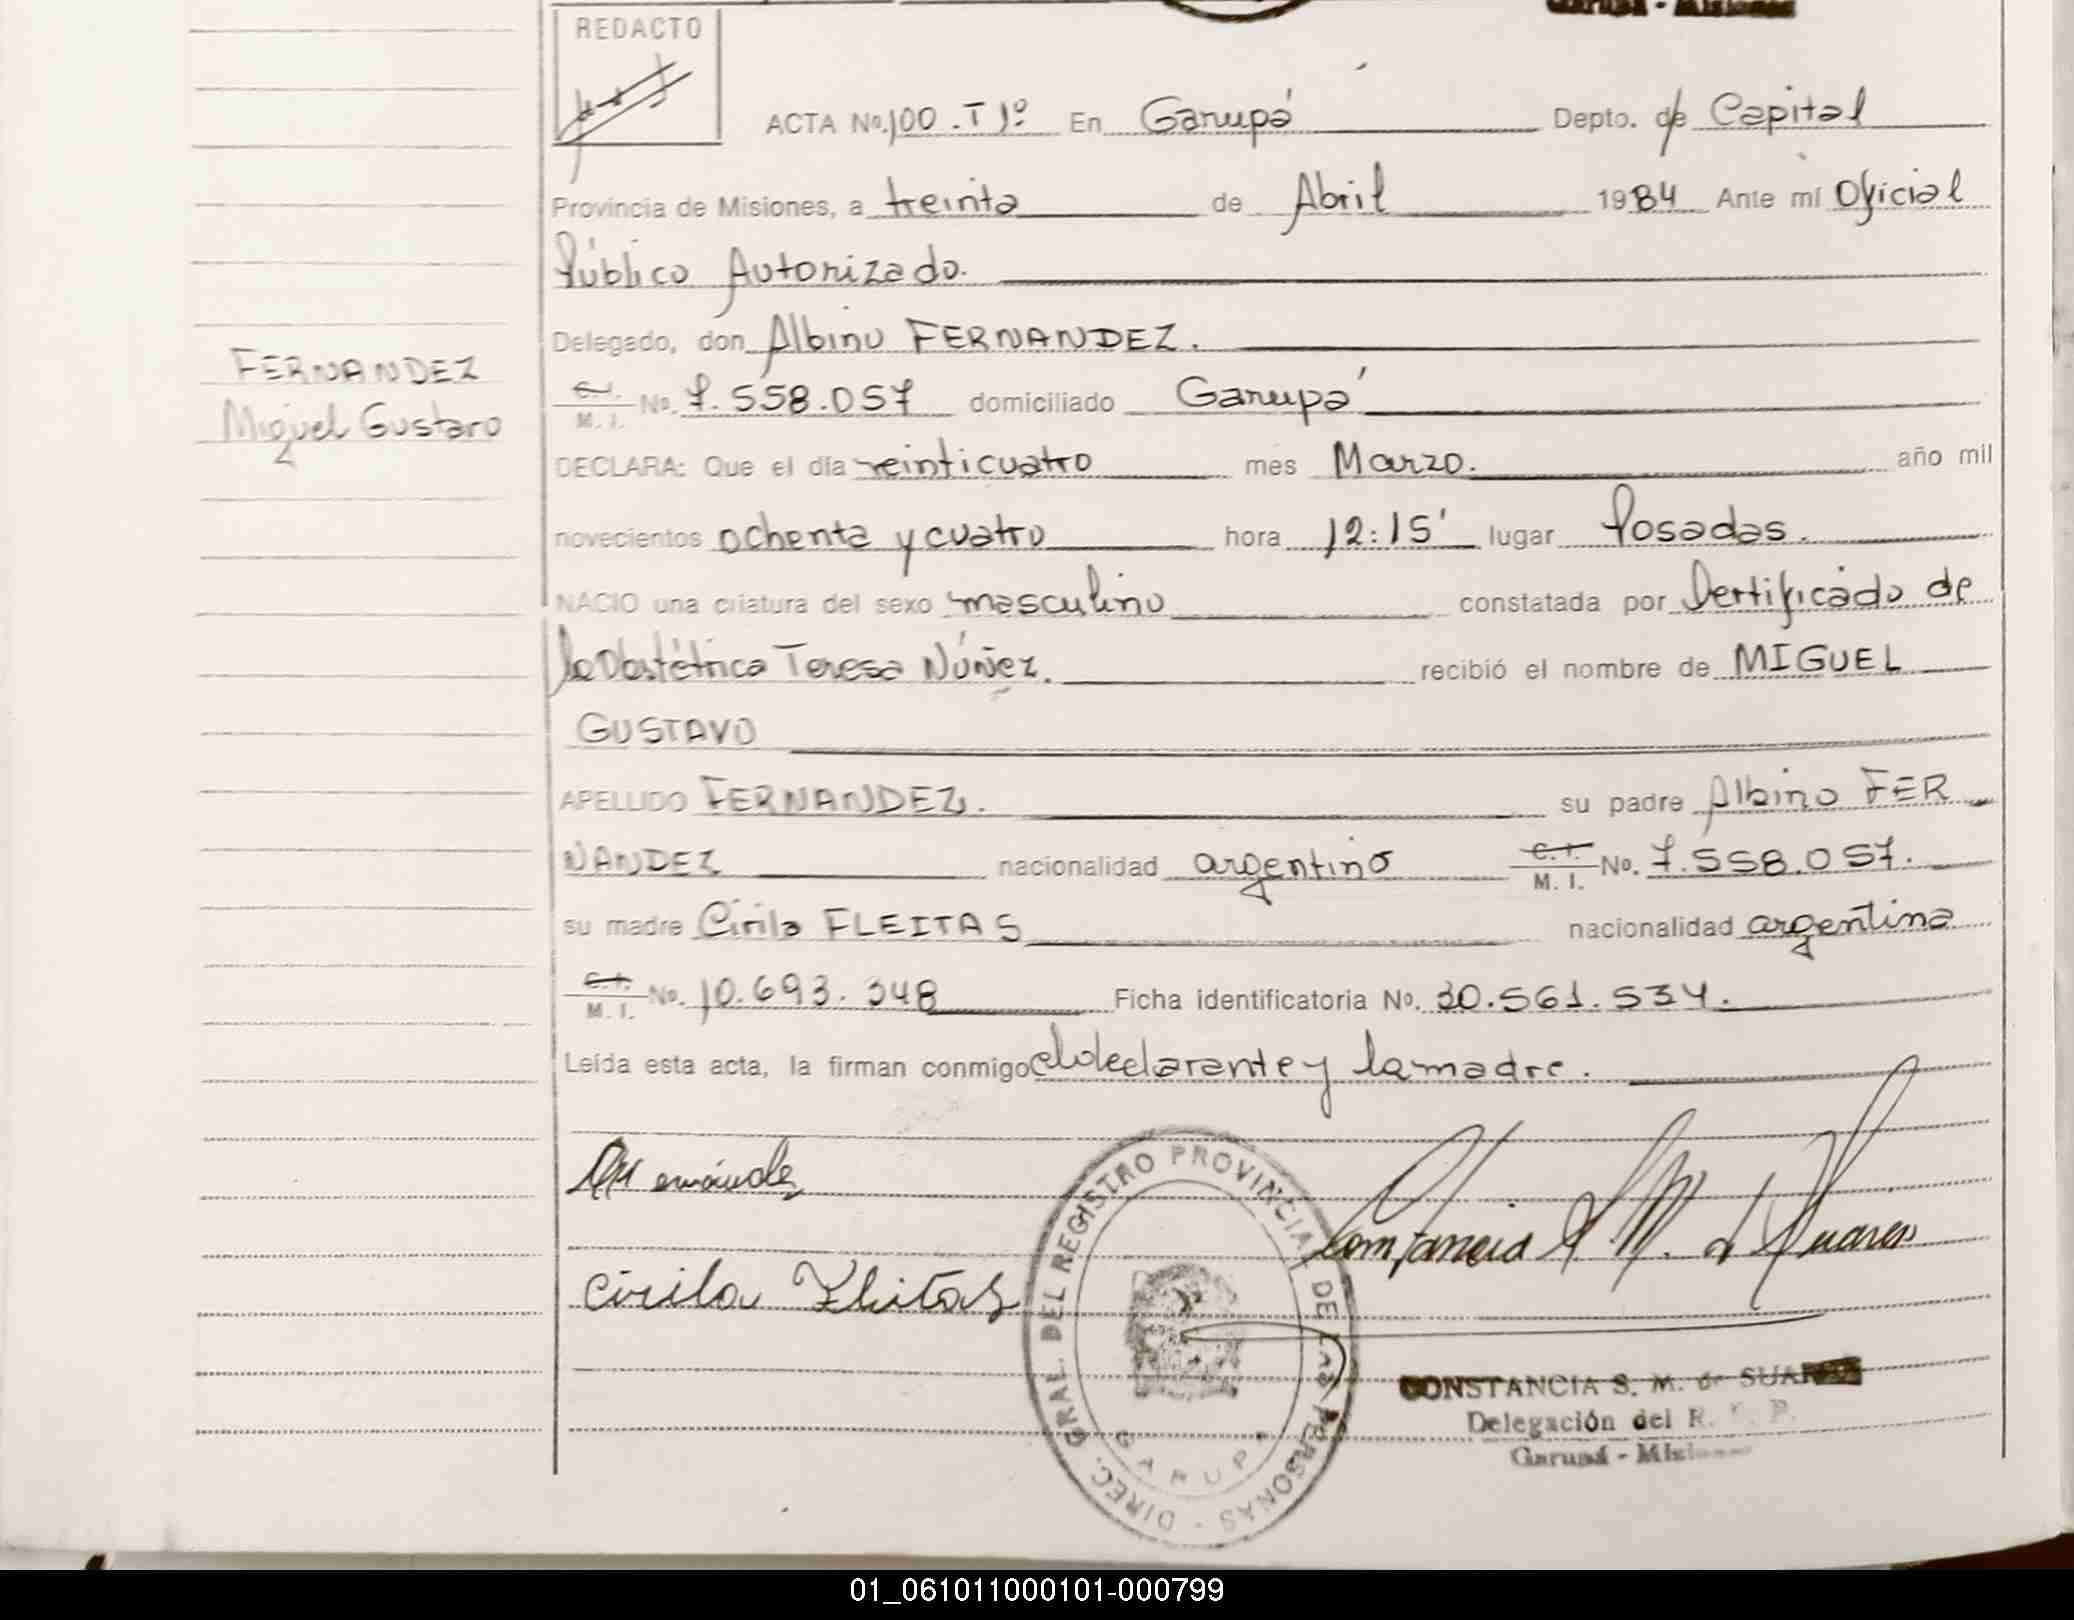 REDACTO
ACTA No. 100.T1º En Garupá Depto. de Capital
Provincia de Misiones, a treinta de Abril 1984 Ante mí Oficial
Público Autorizado.
Delegado, don Albino FERNANDEZ.
C.I. M.I. No. 7.558.057 domiciliado Garupá
FERNANDEZ
Miguel Gustavo
DECLARA: Que el día veinticuatro mes Marzo. año mil
novecientos ochenta y cuatro hora 12:15' lugar Posadas.
NACIO una criatura del sexo masculino constatada por Certificado de
la Obstétrica Teresa Núñez. recibió el nombre de MIGUEL
GUSTAVO
APELLIDO FERNANDEZ. su padre Albino FER
NANDEZ nacionalidad argentino C.I. M.I. No. 7.558.057.
su madre Cirila FLEITAS nacionalidad argentina
C.I. M.I. No. 10.693.348 Ficha identificatoria No. 30.561.534.
Leída esta acta, la firman conmigo el declarante y la madre.
Cirila Fleitas
Constancia S M. d Suarez
DIREC. GRAL. DEL REGISTRO PROVINCIAL DE LAS PERSONAS
GARUPA
CONSTANCIA S. M. de SUAREZ
Delegación del R. P.
Garupá - Misiones
01_061011000101-000799